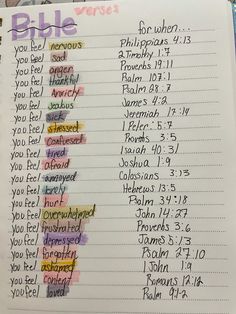 Bible verses
for when...
you feel nervous Philippians 4:13
you feel sad 2 Timothy 1:7
you feel anger Proverbs 19:11
you feel thankful Psalm 107:1
you feel Anxiety Psalm 28:7
you feel Jealous James 4:2
you feel sick Jeremiah 17:14
you feel stressed 1 Peter 5:7
you feel confused Provebs 3:5
you feel tired Isaiah 40:31
you feel afraid Joshua 1:9
you feel annoyed Colosians 3:13
you feel lonely Hebrews 13:5
you feel hurt Psalm 34:18
you feel overwhelmed John 14:27
you feel frustrated Proverbs 3:6
you feel depressed James 5:13
you feel forgotten Psalm 27:10
you feel ashamed 1 John 1:9
you feel content Romans 12:12
you feel loved Psalm 91:2